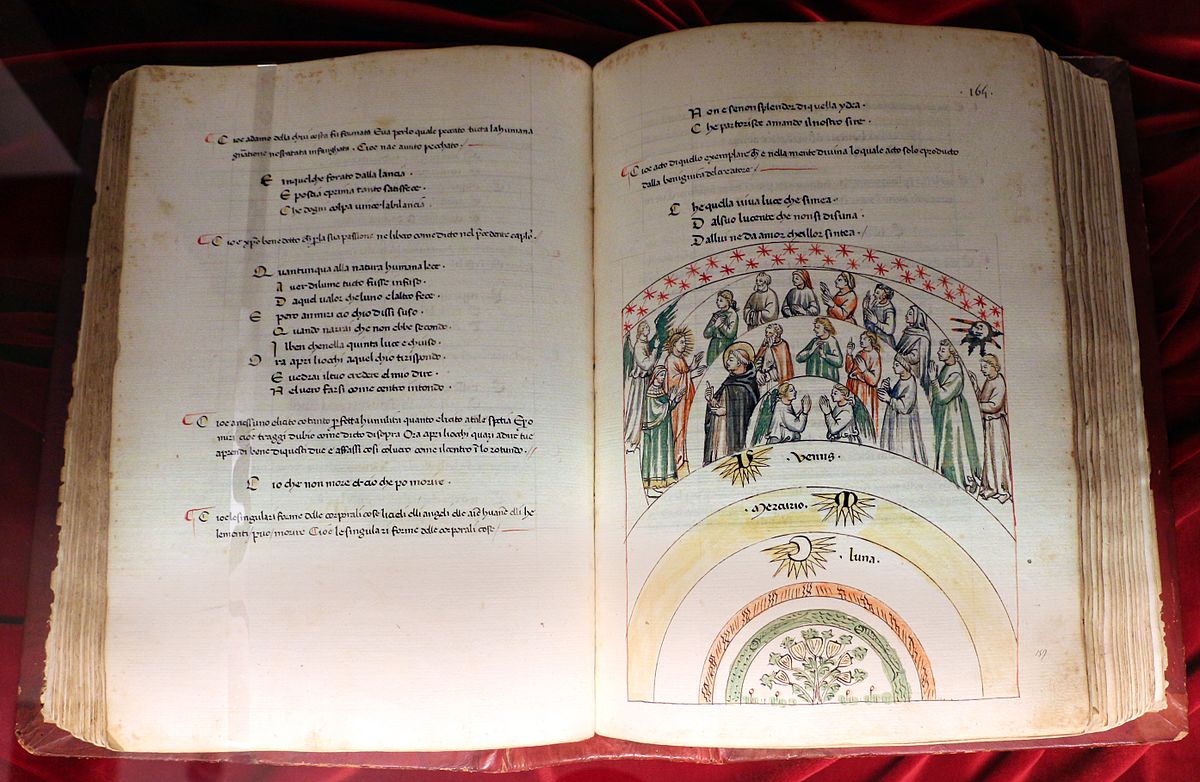 Cioe adamo della chui costa fu formata Eva per lo quale peccato tucta la humana
Cioe nae auuto pecchato.
E inquel che forato dalla lancia.
E poscia e prima tanto satisfece.
Che dogni colpa vince la bilancia.
Cioe xpo benedetto che per la sua passione ne libero come dicto nel precedente caplo.
Quantunqua alla natura humana lece.
Aver di lume tucto fusse infuso.
Da quel valor che luno e laltro fece.
E pero ammiri cio chio dissi suso.
Quando narrai che non ebbe secondo.
Il ben che nella quinta luce e chiuso.
Ora apri liocchi aquel chio ti rispondo.
E vedrai il tuo credere el mio dire.
Nel vero farsi come centro intondo.
Cioe anessuno e licito cotanto
come dicto di sopra Ora apri liocchi quasi
aprendi bene di questi due come il centro lo rotundo.
Cio che non more et cio che po morire.
Cioe le singulari forme delle corporali cose
lementi puo morire Cioe le singulari forme delle corporali cose
.164.
Non e se non splendor di quella ydea.
Che partorisce amando il nostro sire.
Cioe acto di quello exemplare che e nella mente divina lo quale acto solo e producto
dalla benignita del creatore.
Che quella viva luce che si mea.
Dal suo lucente che non si disuna.
Dallui ne da amor che illor sintea.
V
.Venus.
.Mercurio.
M
.luna.
159